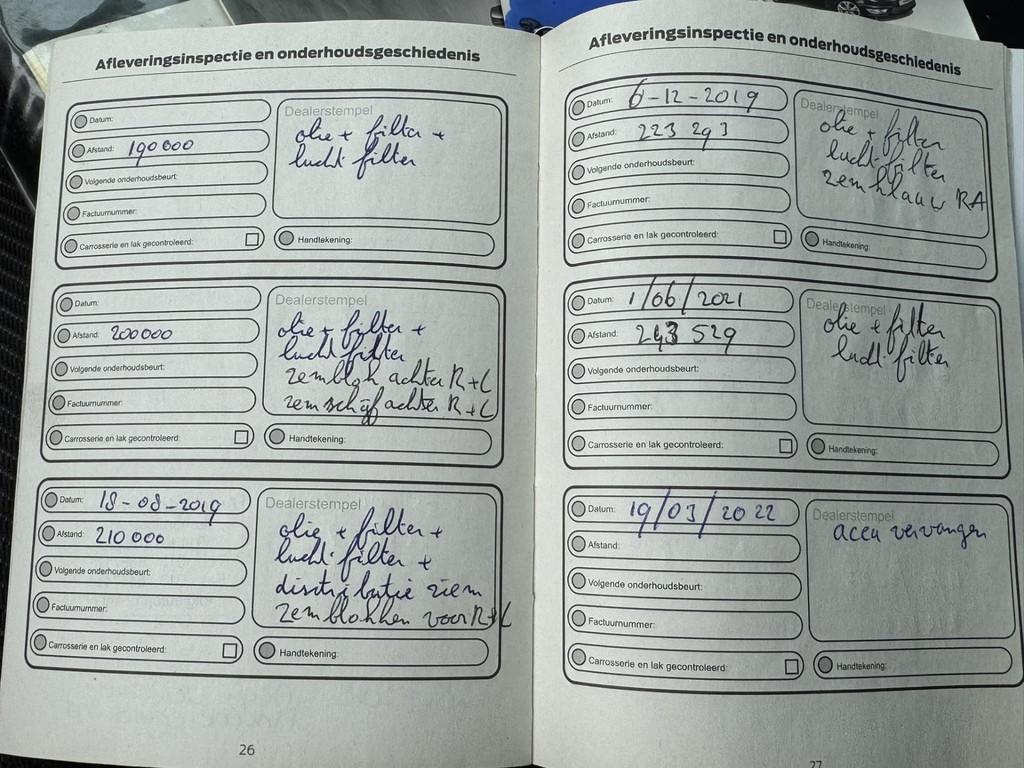 Afleveringsinspectie en onderhoudsgeschiedenis
Datum:
Afstand: 190 000
Volgende onderhoudsbeurt:
Factuurnummer:
Carrosserie en lak gecontroleerd:
Dealerstempel
olie + filter +
lucht filter
Handtekening:
Datum:
Afstand: 200 000
Volgende onderhoudsbeurt:
Factuurnummer:
Carrosserie en lak gecontroleerd:
Dealerstempel
olie + filter +
lucht filter
remblok achter R+L
remschijf achter R+L
Handtekening:
Datum: 18-08-2019
Afstand: 210 000
Volgende onderhoudsbeurt:
Factuurnummer:
Carrosserie en lak gecontroleerd:
Dealerstempel
olie + filter +
lucht filter +
distributie riem
remblokken voor R+L
Handtekening:
26
Afleveringsinspectie en onderhoudsgeschiedenis
Datum: 6-12-2019
Afstand: 223 293
Volgende onderhoudsbeurt:
Factuurnummer:
Carrosserie en lak gecontroleerd:
Dealerstempel
olie + filter
lucht filter
remklauw RA
Handtekening:
Datum: 1/06/2021
Afstand: 243 529
Volgende onderhoudsbeurt:
Factuurnummer:
Carrosserie en lak gecontroleerd:
Dealerstempel
olie + filter
lucht filter
Handtekening:
Datum: 19/03/2022
Afstand:
Volgende onderhoudsbeurt:
Factuurnummer:
Carrosserie en lak gecontroleerd:
Dealerstempel
accu vervangen
Handtekening:
27